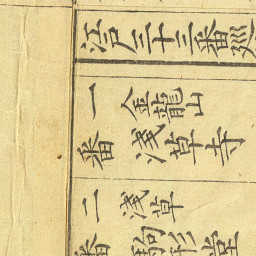 江戸三十三番巡
一番
金龍山
浅草寺
二番
浅草
駒形堂